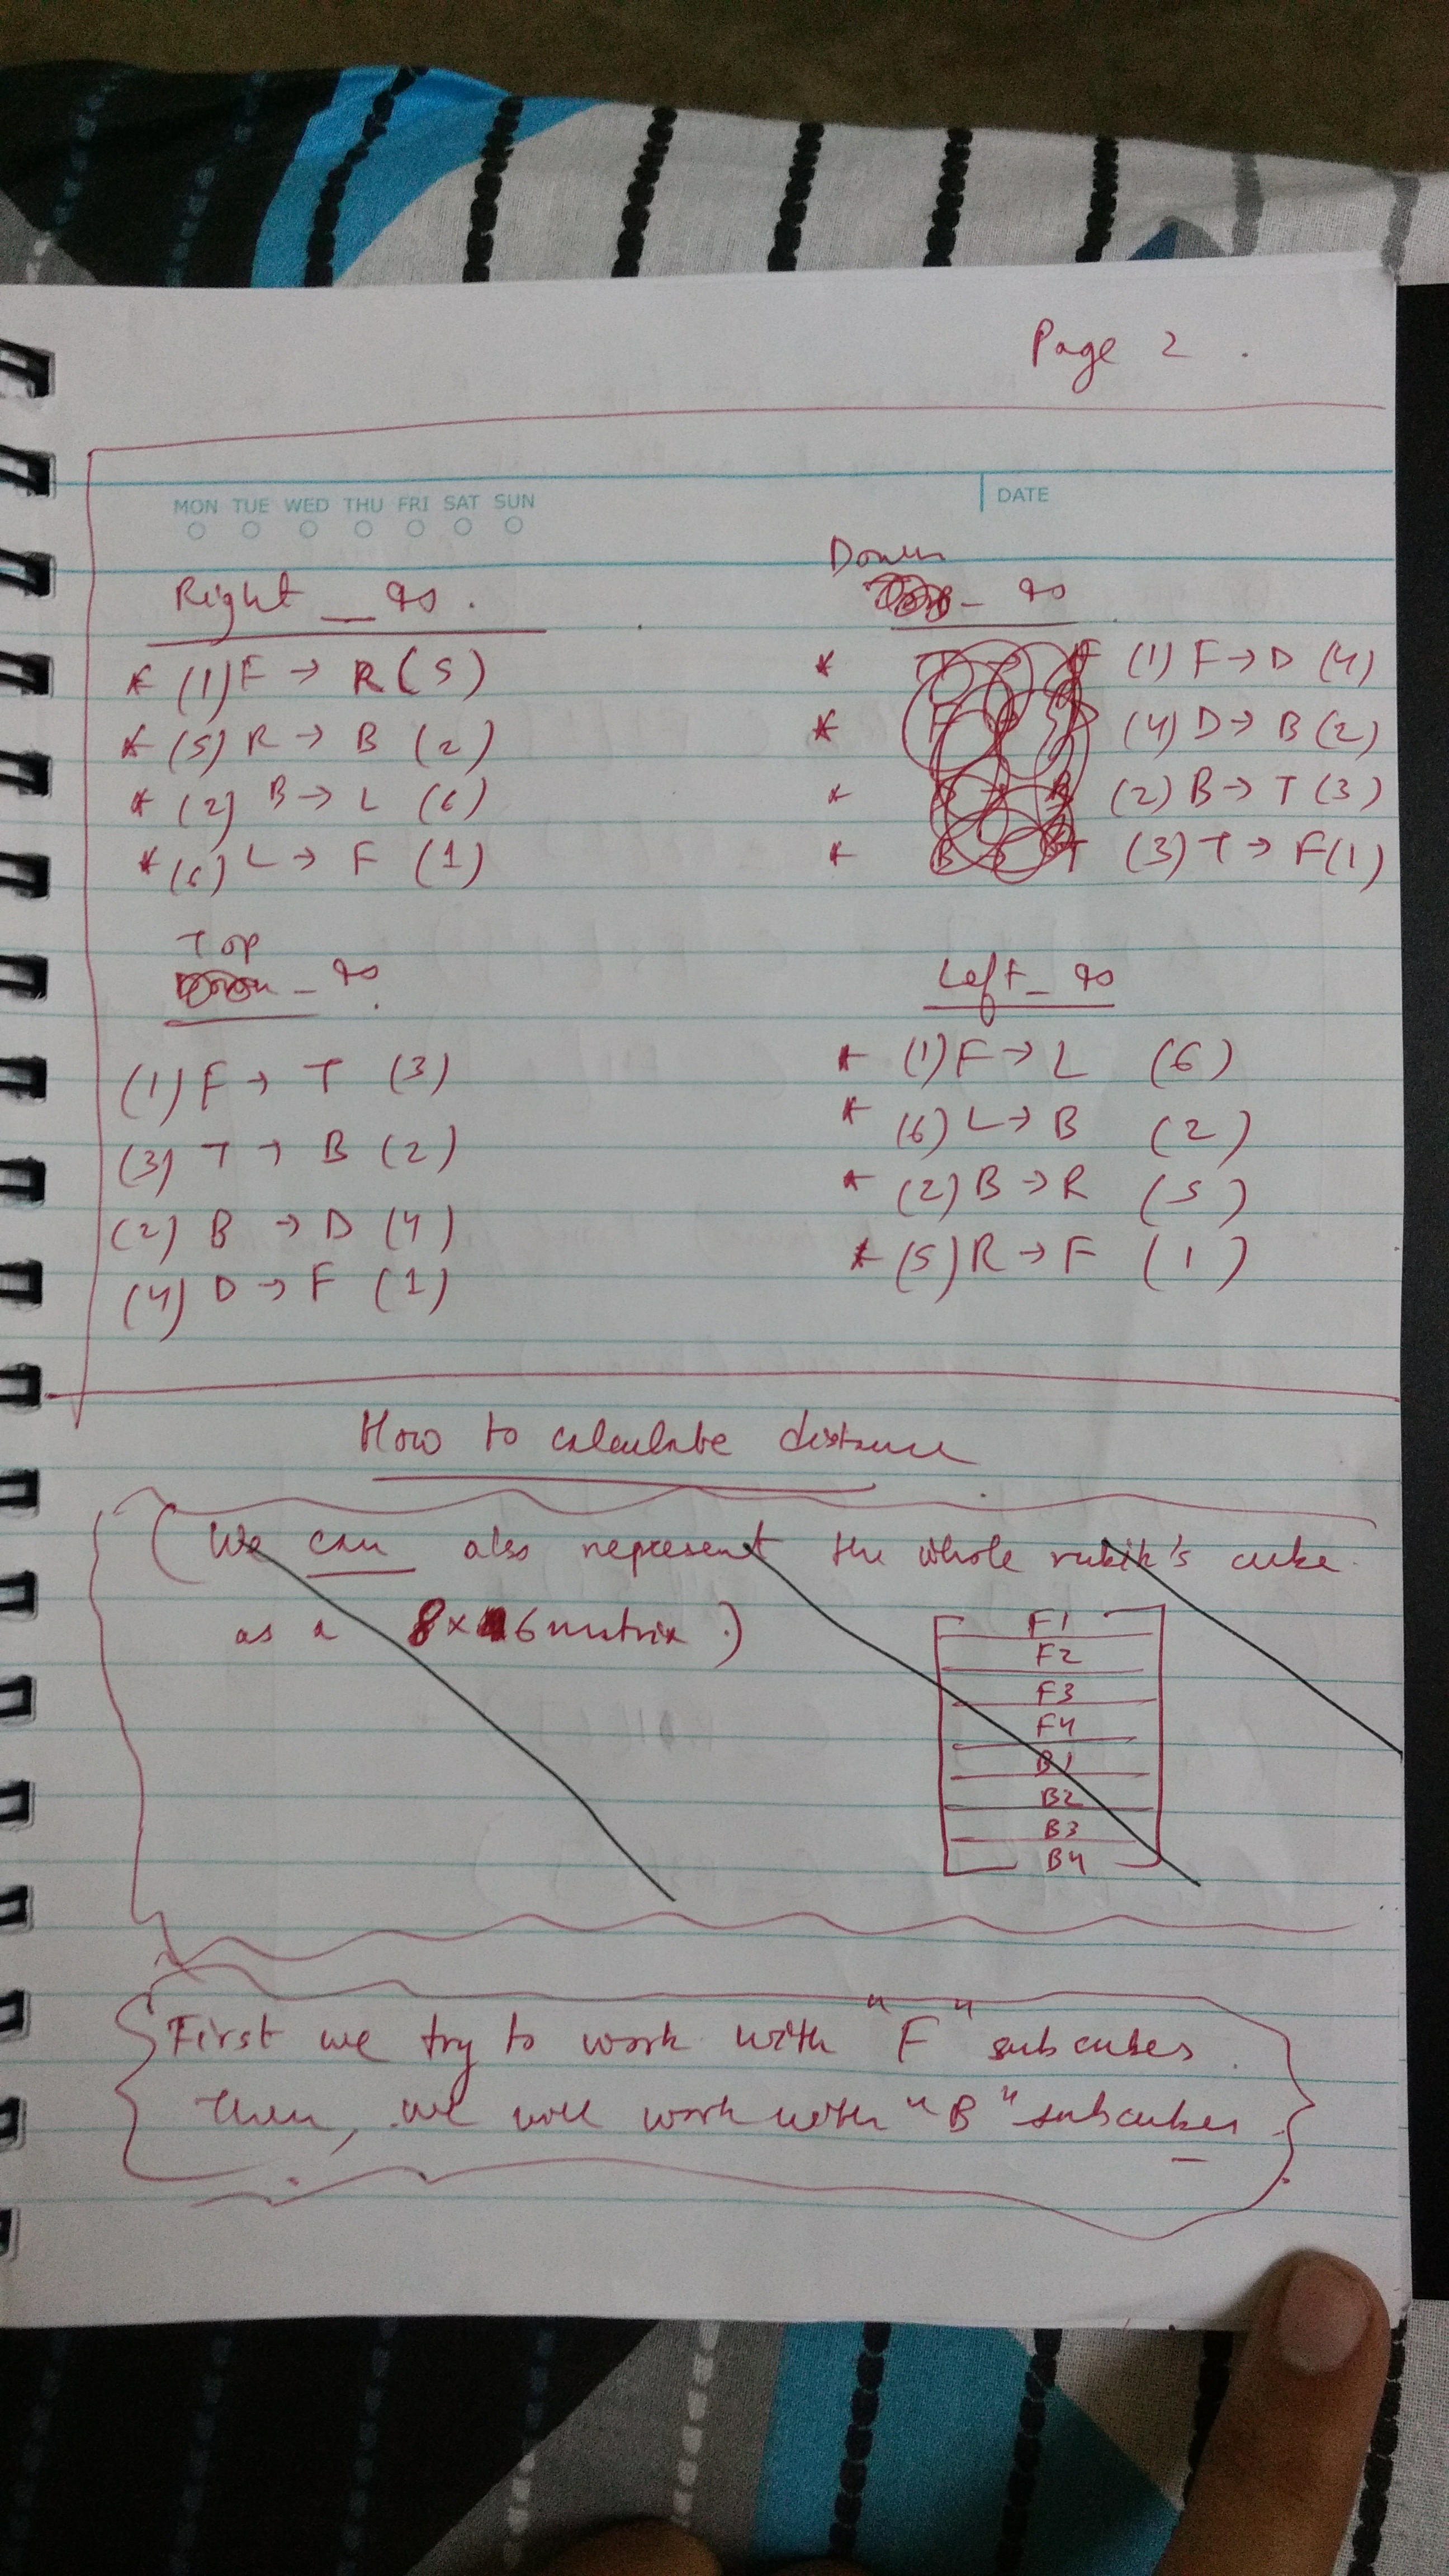 Page 2 .
MON TUE WED THU FRI SAT SUN
DATE
Right _ 90 .
* (1) F → R (5)
* (5) R → B (2)
* (2) B → L (6)
* (6) L → F (1)
Down
_ 90
* (1) F → D (4)
* (4) D → B (2)
* (2) B → T (3)
* (3) T → F (1)
Top
_ 90
(1) F → T (3)
(3) T → B (2)
(2) B → D (4)
(4) D → F (1)
Left _ 90
* (1) F → L (6)
* (6) L → B (2)
* (2) B → R (5)
* (5) R → F (1)
How to calculate distance
(We can also represent the whole rubik's cube
as a 8 x 6 matrix .)
F1
F2
F3
F4
B1
B2
B3
B4
First we try to work with "F" subcubes .
Then, we will work with "B" subcubes